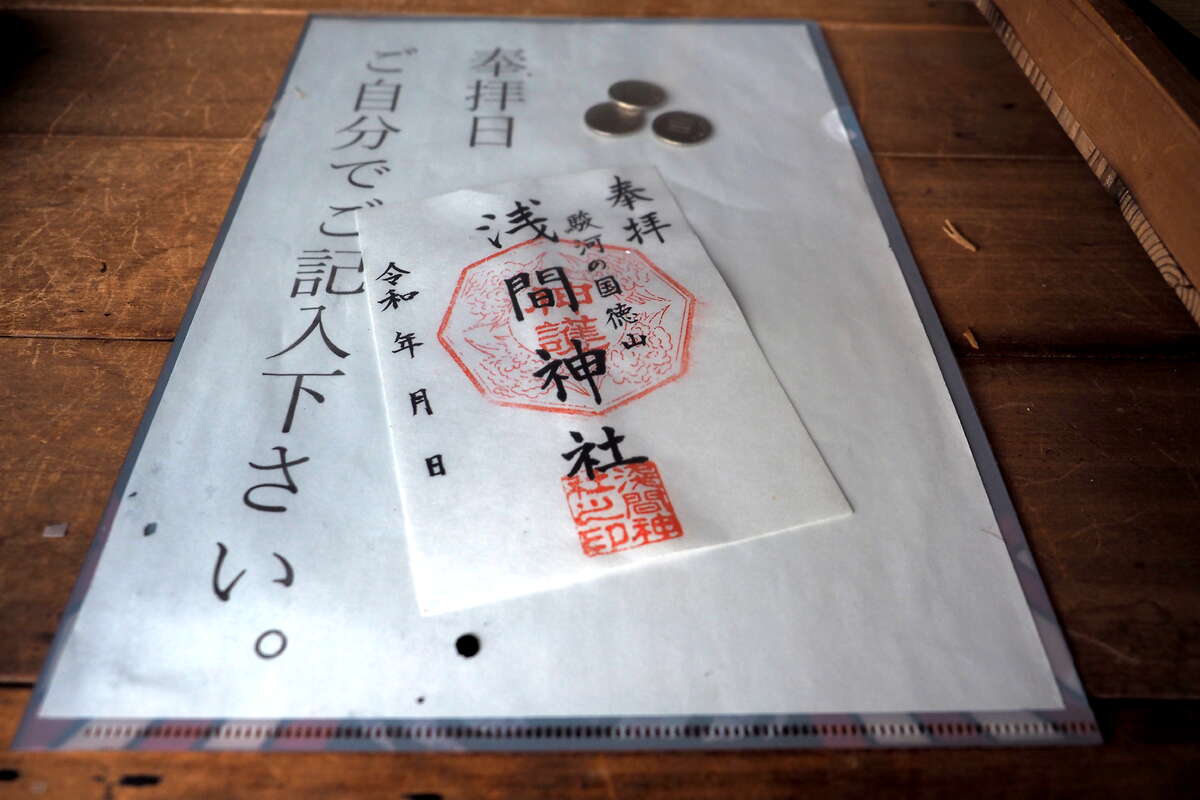 奉拝日
ご自分でご記入下さい。
奉拝
駿河の国徳山
浅間神社
神護
浅間神
社之印
令和 年 月 日